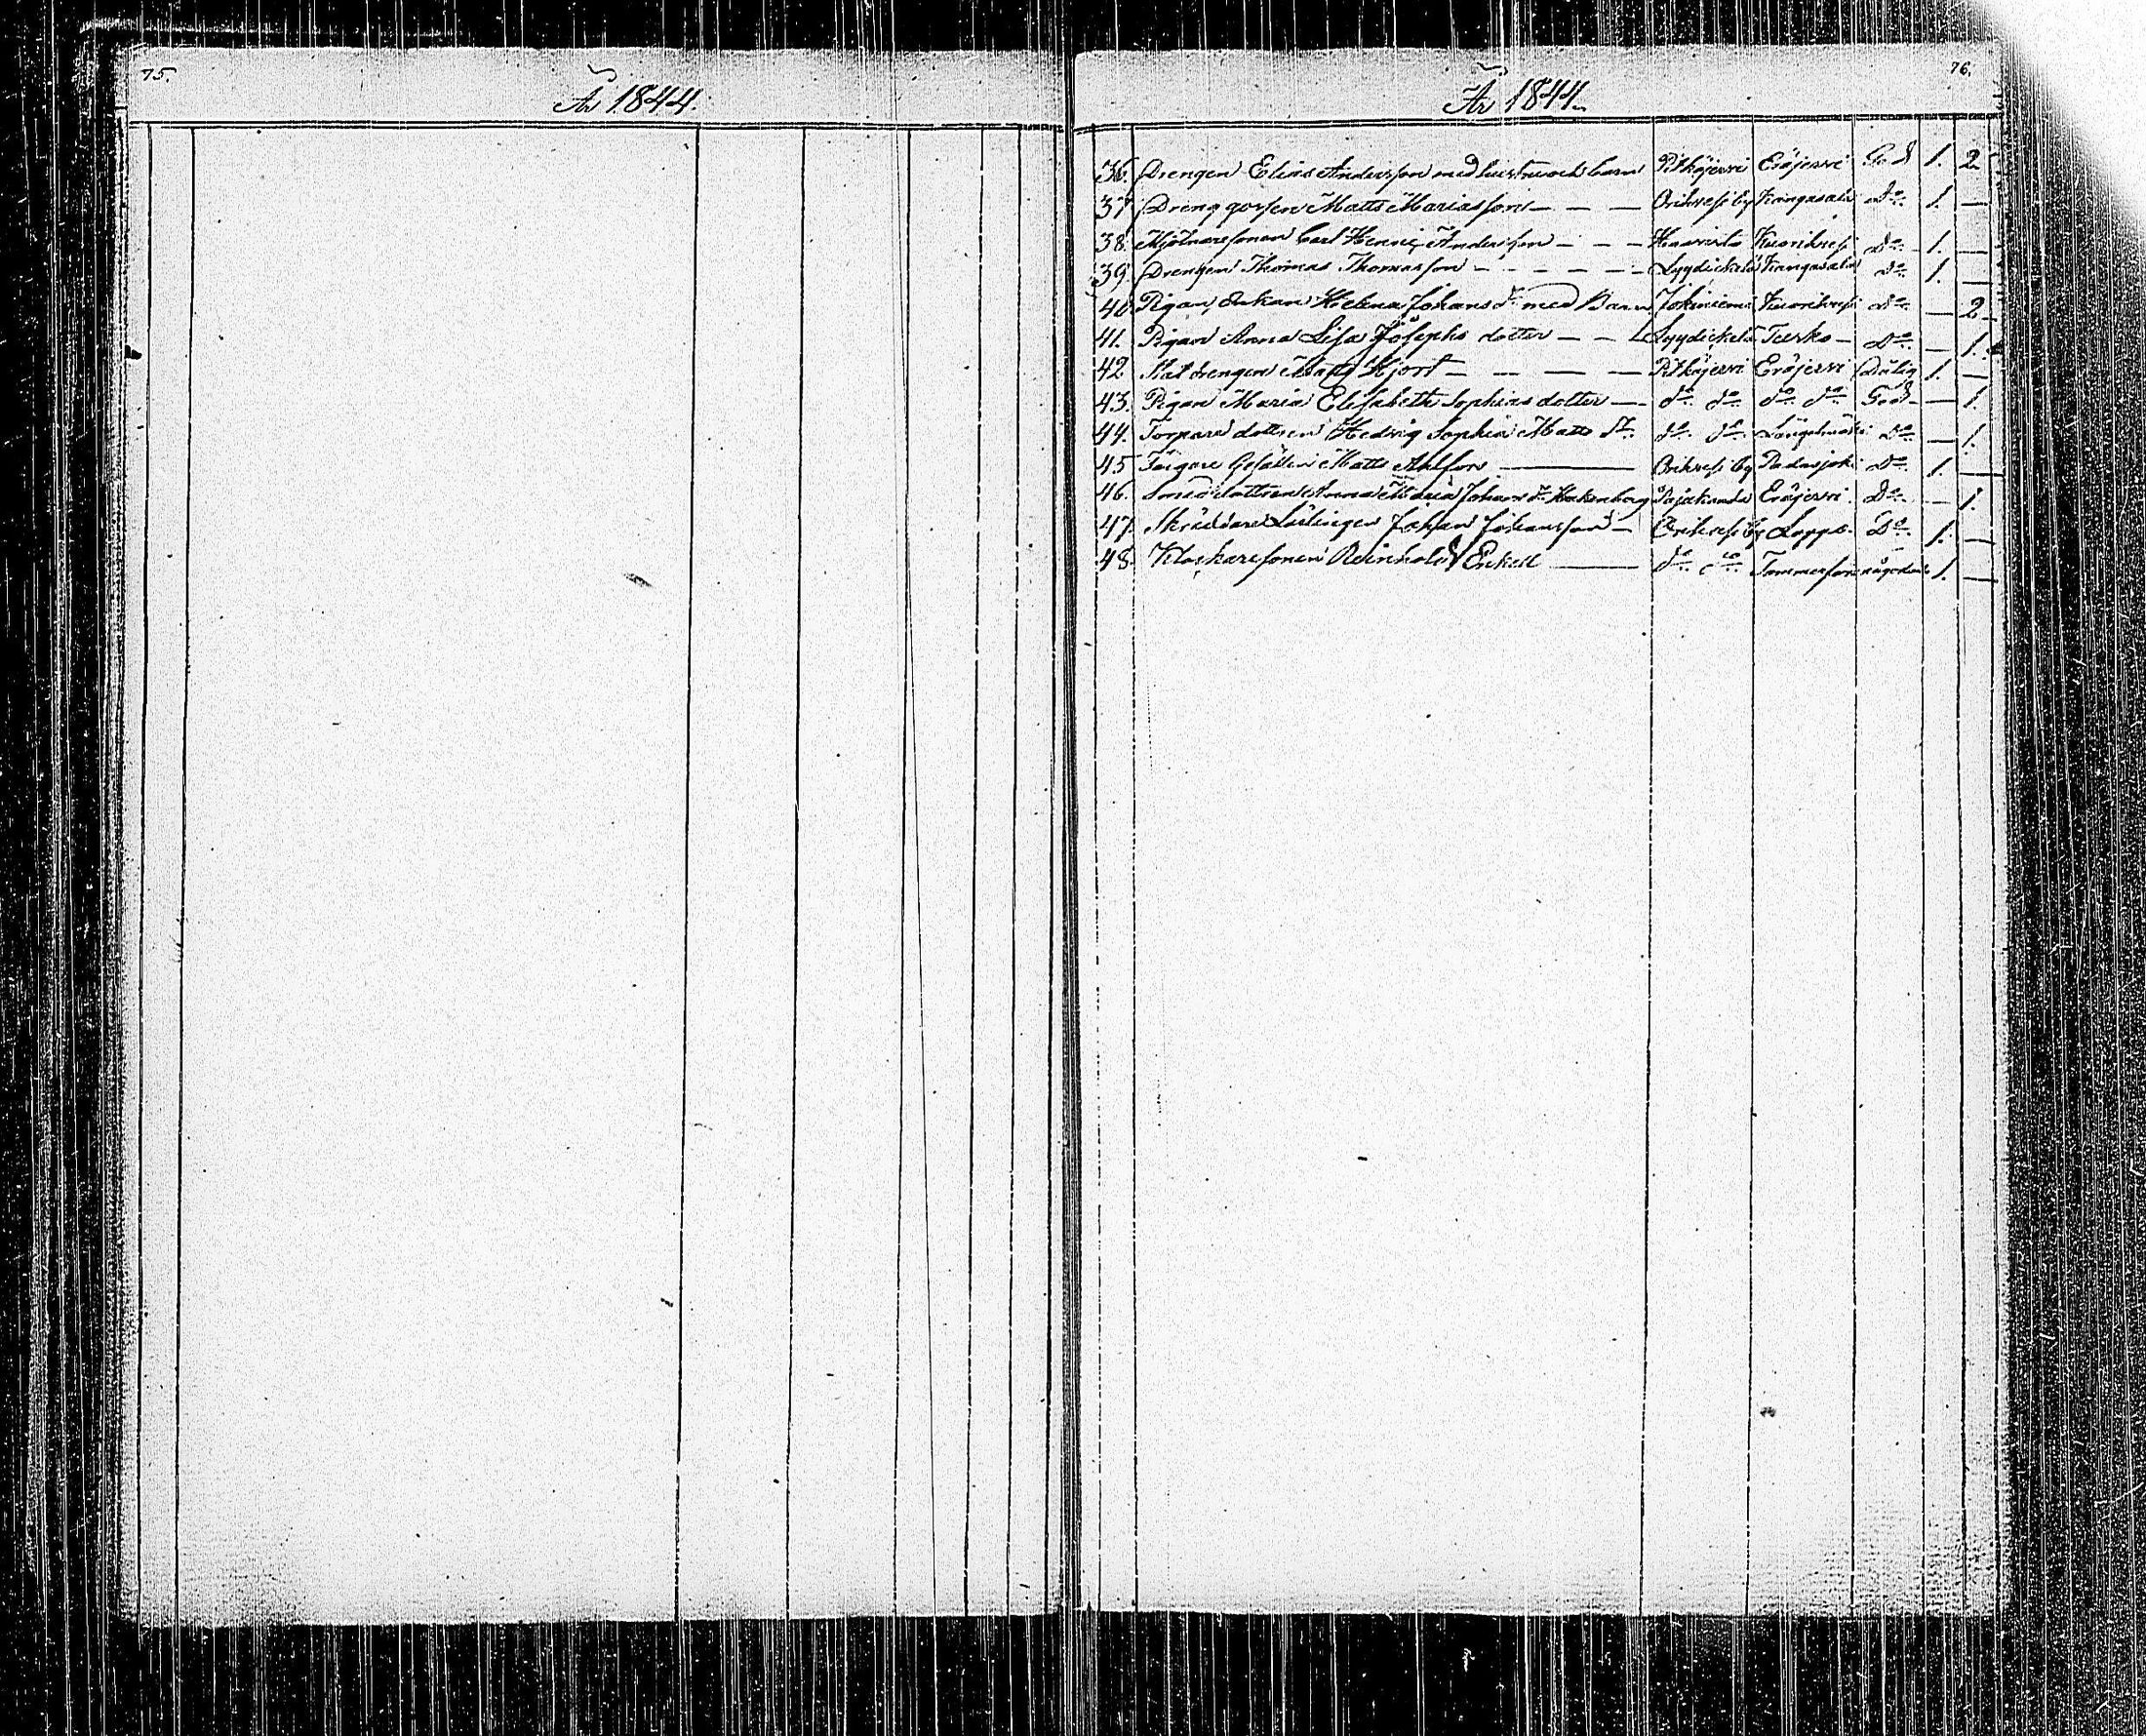 75.
År 1844.
76.
År 1844.
36. Drengen Elias Andersson med hustru och barn Pitkäjervi Eräjervi God 1. 2
37 Dreng gossen Matts Mariasson — — — Orihvesi by Kangasala Do 1. —
38. Mjölnaresonen Carl Henric Andersson - - - Haavisto Kuorihvesi Do 1. —
39. Drengen Thomas Thomasson - - - - - - Lyydickelä Kangasala Do 1. —
40 Pigan, Enkan Helena Johans dr med Barn Jokiniemi Kuorihvesi Do — 2
41. Pigan Anna Lisa Josephs dotter — — Lyydickelä Teisko — Do — 1.
42 Statdrengen Matts Hjort — — — — Pitkäjervi Eräjervi Dålig 1. —
43. Pigan Maria Elisabeth Sophias dotter — do do do do God — 1.
44. Torpare dottren Hedvig Sophia Matts dr do do Längelmäki Do — 1.
45 Färgare Gesällen Matts Ahlfors — Orihvesi by Padasjoki Do 1. —
46. Smeddottren Anna Maria Johans dr Eräjervi Do — 1.
47. Skräddare Lärlingen Johan Johansson — Orihvesi by Loppis Do 1. —
48. Klockaresonen Reinhold Enkell — do do 1. —